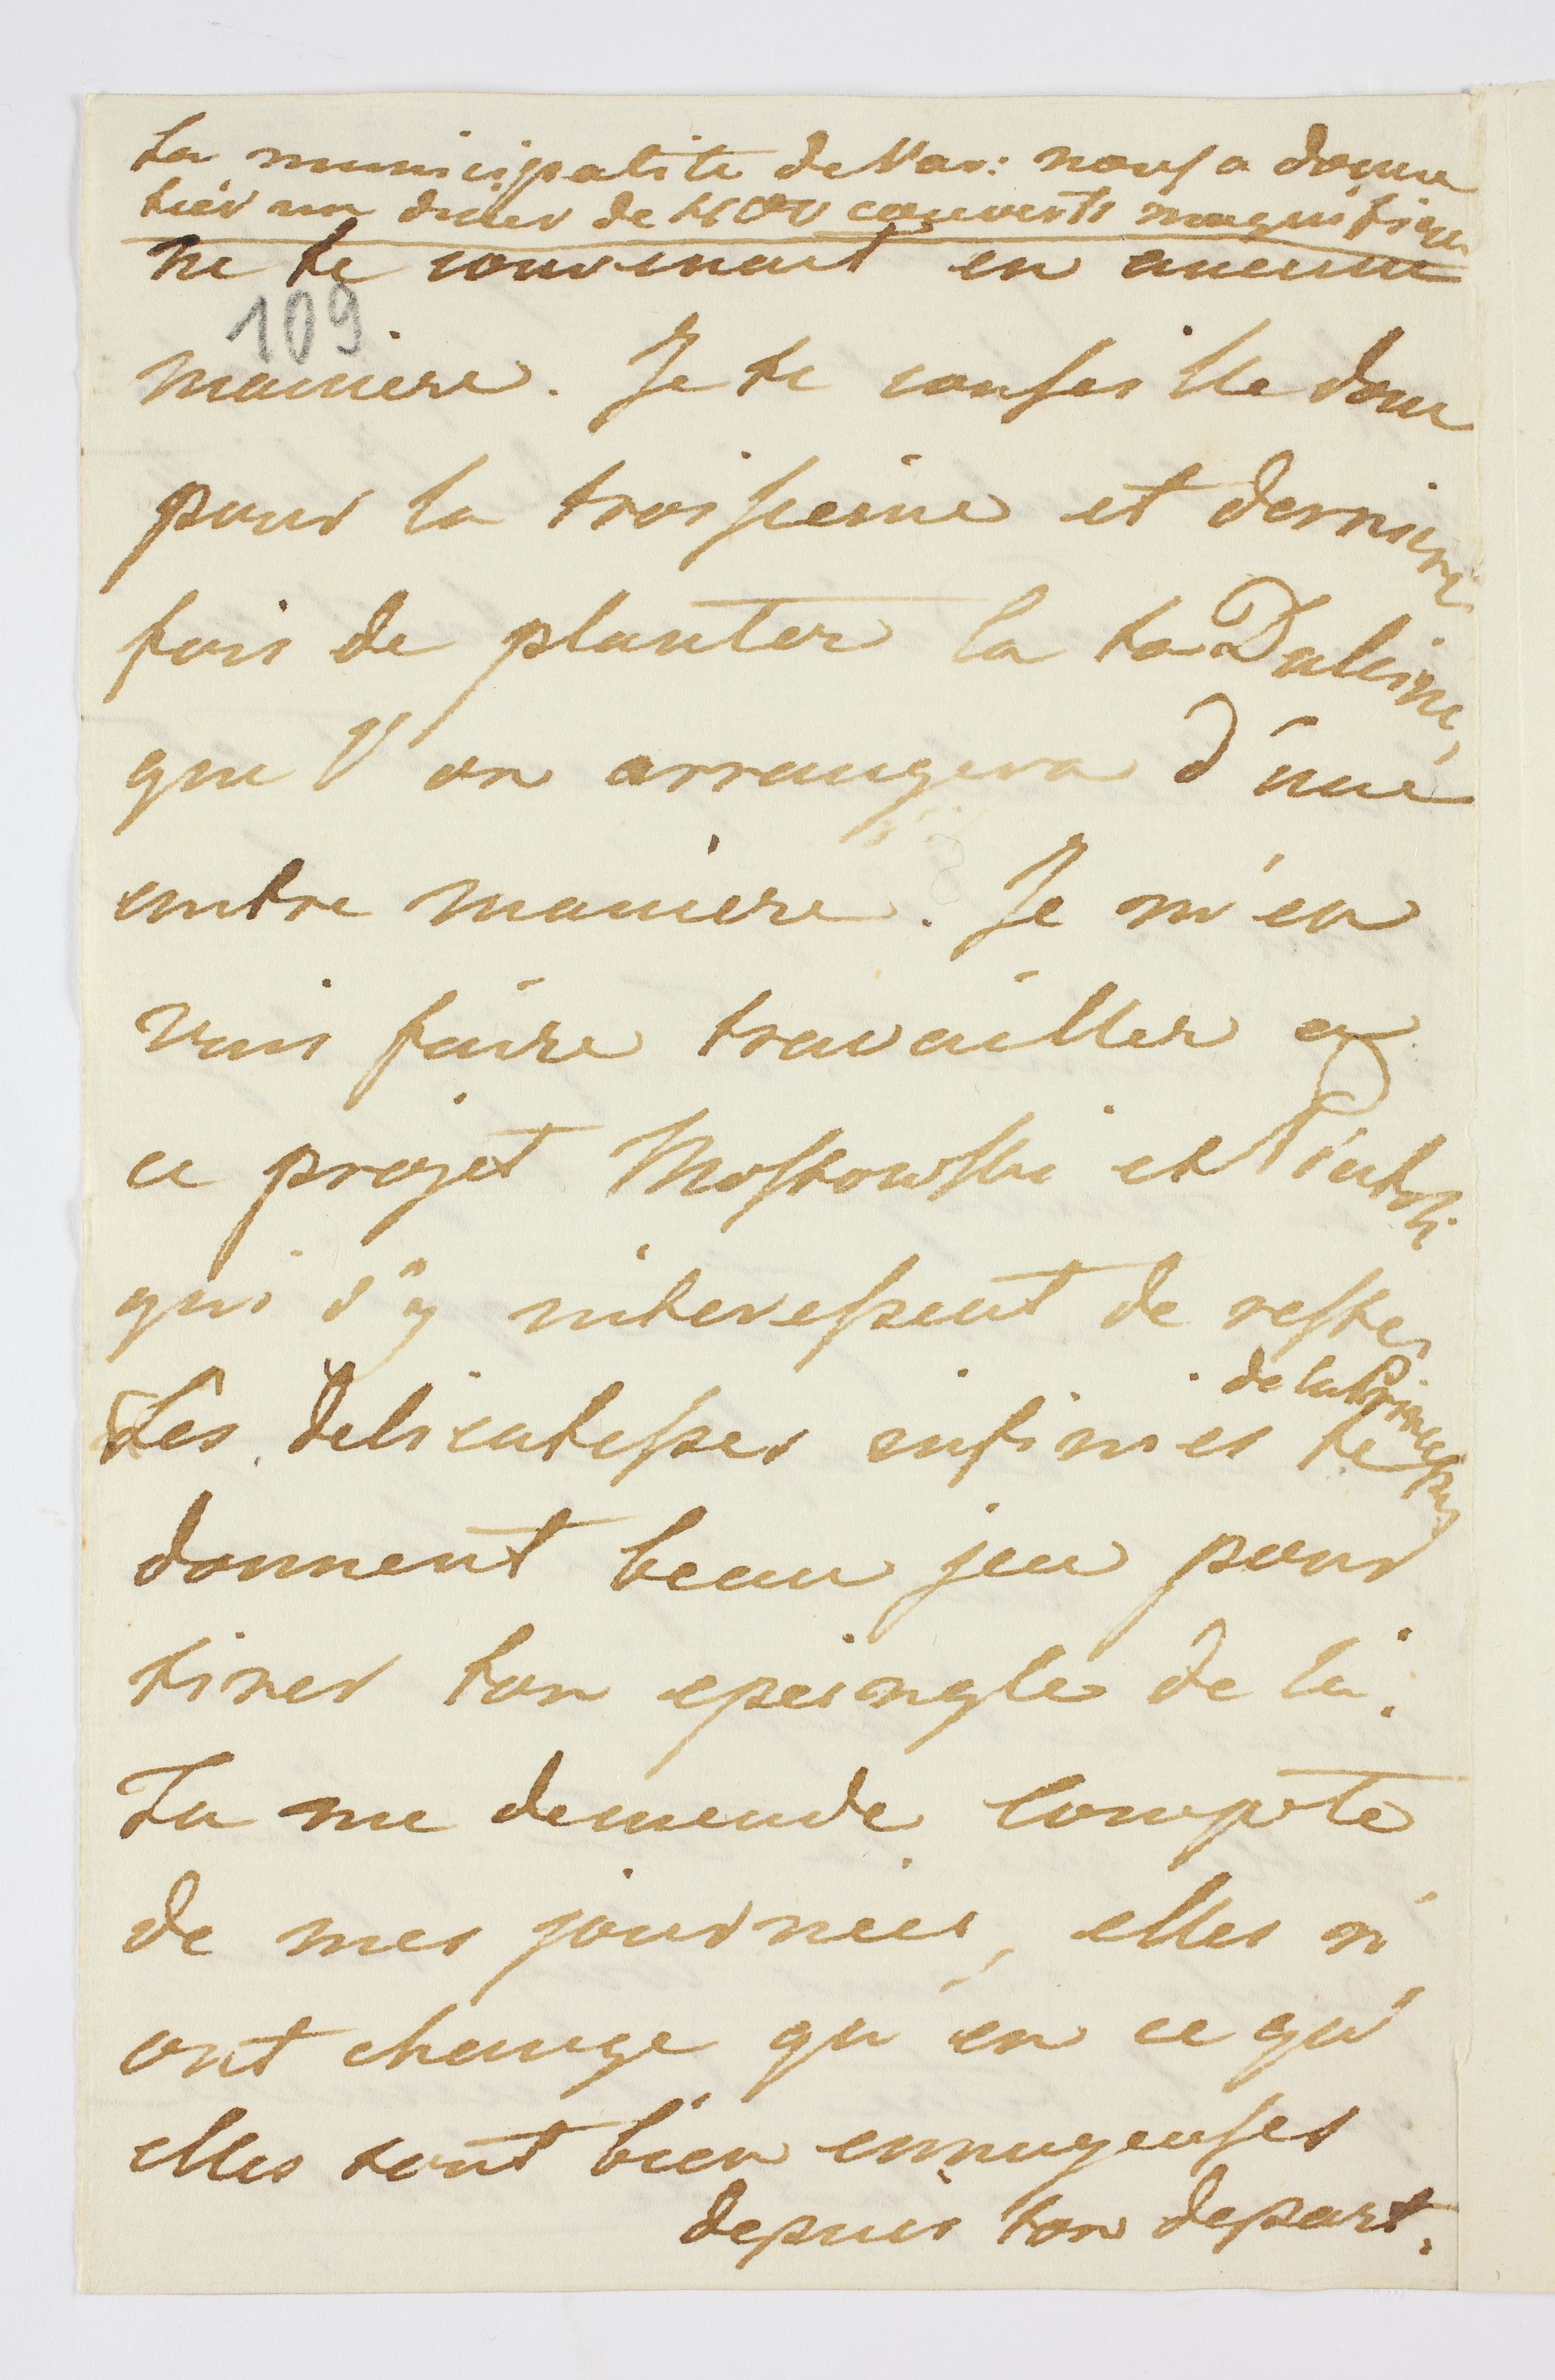 La municipalité de Var: nous a donné
hier un diner de 400 couverts magnifique
ne te convenant en aucune
109
maniere. Je te conseille donc
pour la troisieme et derniere
fois de planter la ta Dulcine,
que l'on arrangera d'une
autre maniere. Je m'en
vais faire travailler a
ce projet Mostowski et
qui s'y interessent de reste.
de la Princesse
Les delicatesses infinies te
donnent beau jeu pour
tirer ton epeingle de là.
Tu me demende compte
de mes journées, elles n'
ont change qu'en ce qu'
elles sont bien ennuyeuses
depuis ton depart.